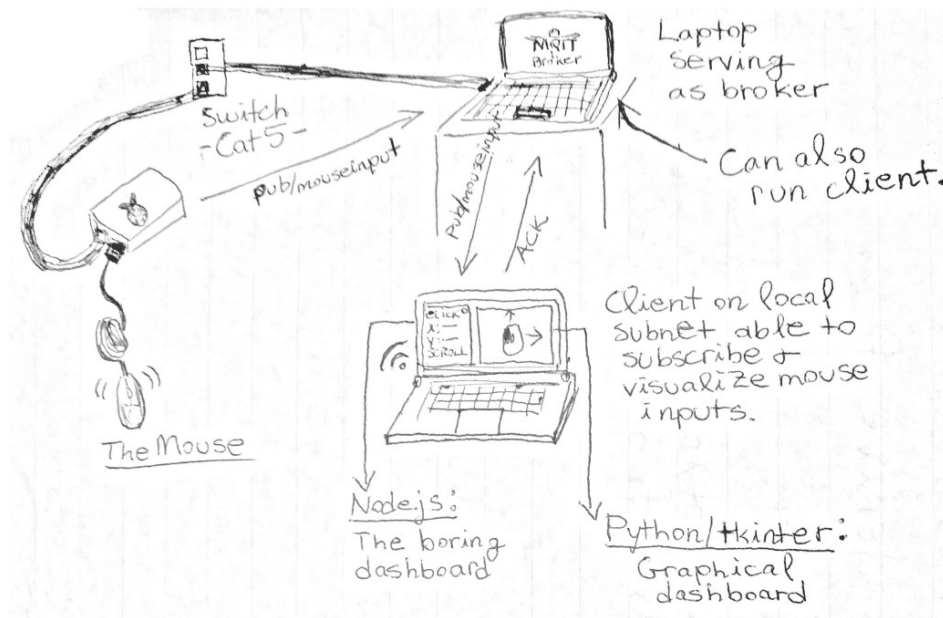 MQTT
Broker
Laptop
serving
as broker
Switch
-Cat5-
pub/mouseinput
Pub/mouseinput
ACK
Can also
run client.
CLICK
X:
Y:
SCROLL
Client on local
subnet able to
subscribe &
visualize mouse
inputs.
The Mouse
Node.js:
The boring
dashboard
Python/tkinter:
Graphical
dashboard